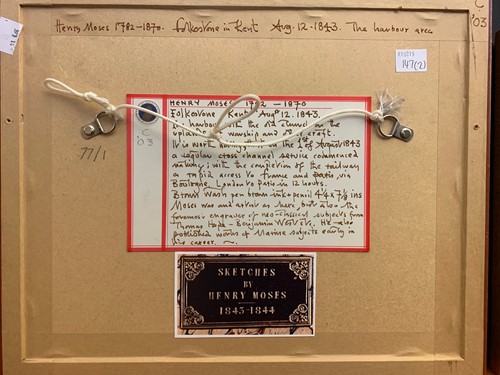 Henry Moses 1782-1870. Folkestone in Kent Aug. 12. 1843. The harbour area
C
'03
147(2)
HENRY MOSES 1782 - 1870
Folkestone Kent Augst 12. 1843.
harbour with the old church on the
worship and craft.
It is worth noting on the 1st of August 1843
a regular cross channel service commenced
with the completion of the railway
a rapid access to France and Paris, via
Boulogne, London to Paris in 12 hours.
Brown wash pen brown ink & pencil 4¼ x 7⅛ ins
Moses was and artist as here, but also the
foremost engraver of neo-classical subjects from
Thomas Hope - Benjamin West etc. He also
published works of Marine subjects early in
his career.
C
'03
77/1
SKETCHES
BY
HENRY MOSES
1843-1844